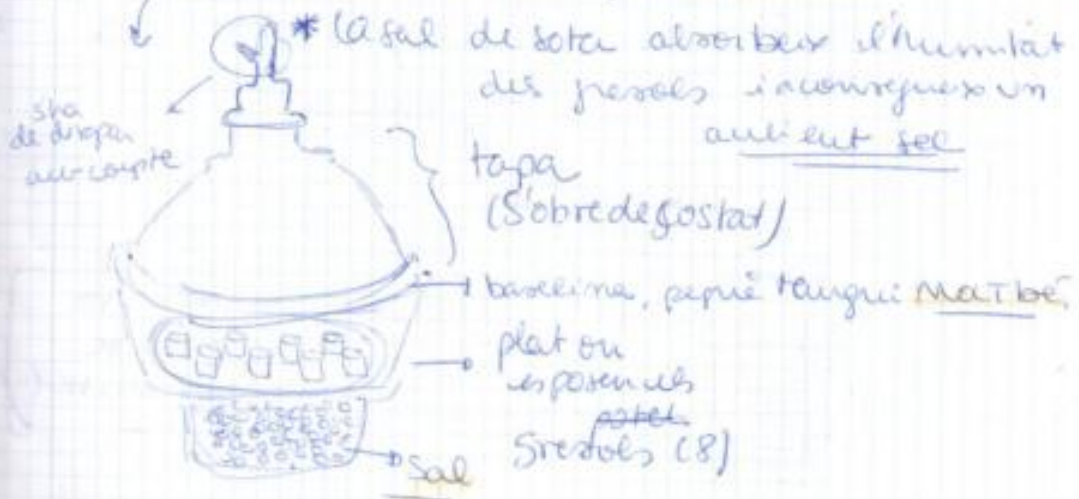 * la sal de sota absorbeix l'humitat
dels gresols i aconsegueix un
ambient sec
s'ha
de
amb compte
tapa
(S'obre de costat)
baselina, perquè tanqui MOLT bé.
plat on
es posen els
gresols (8)
Sal